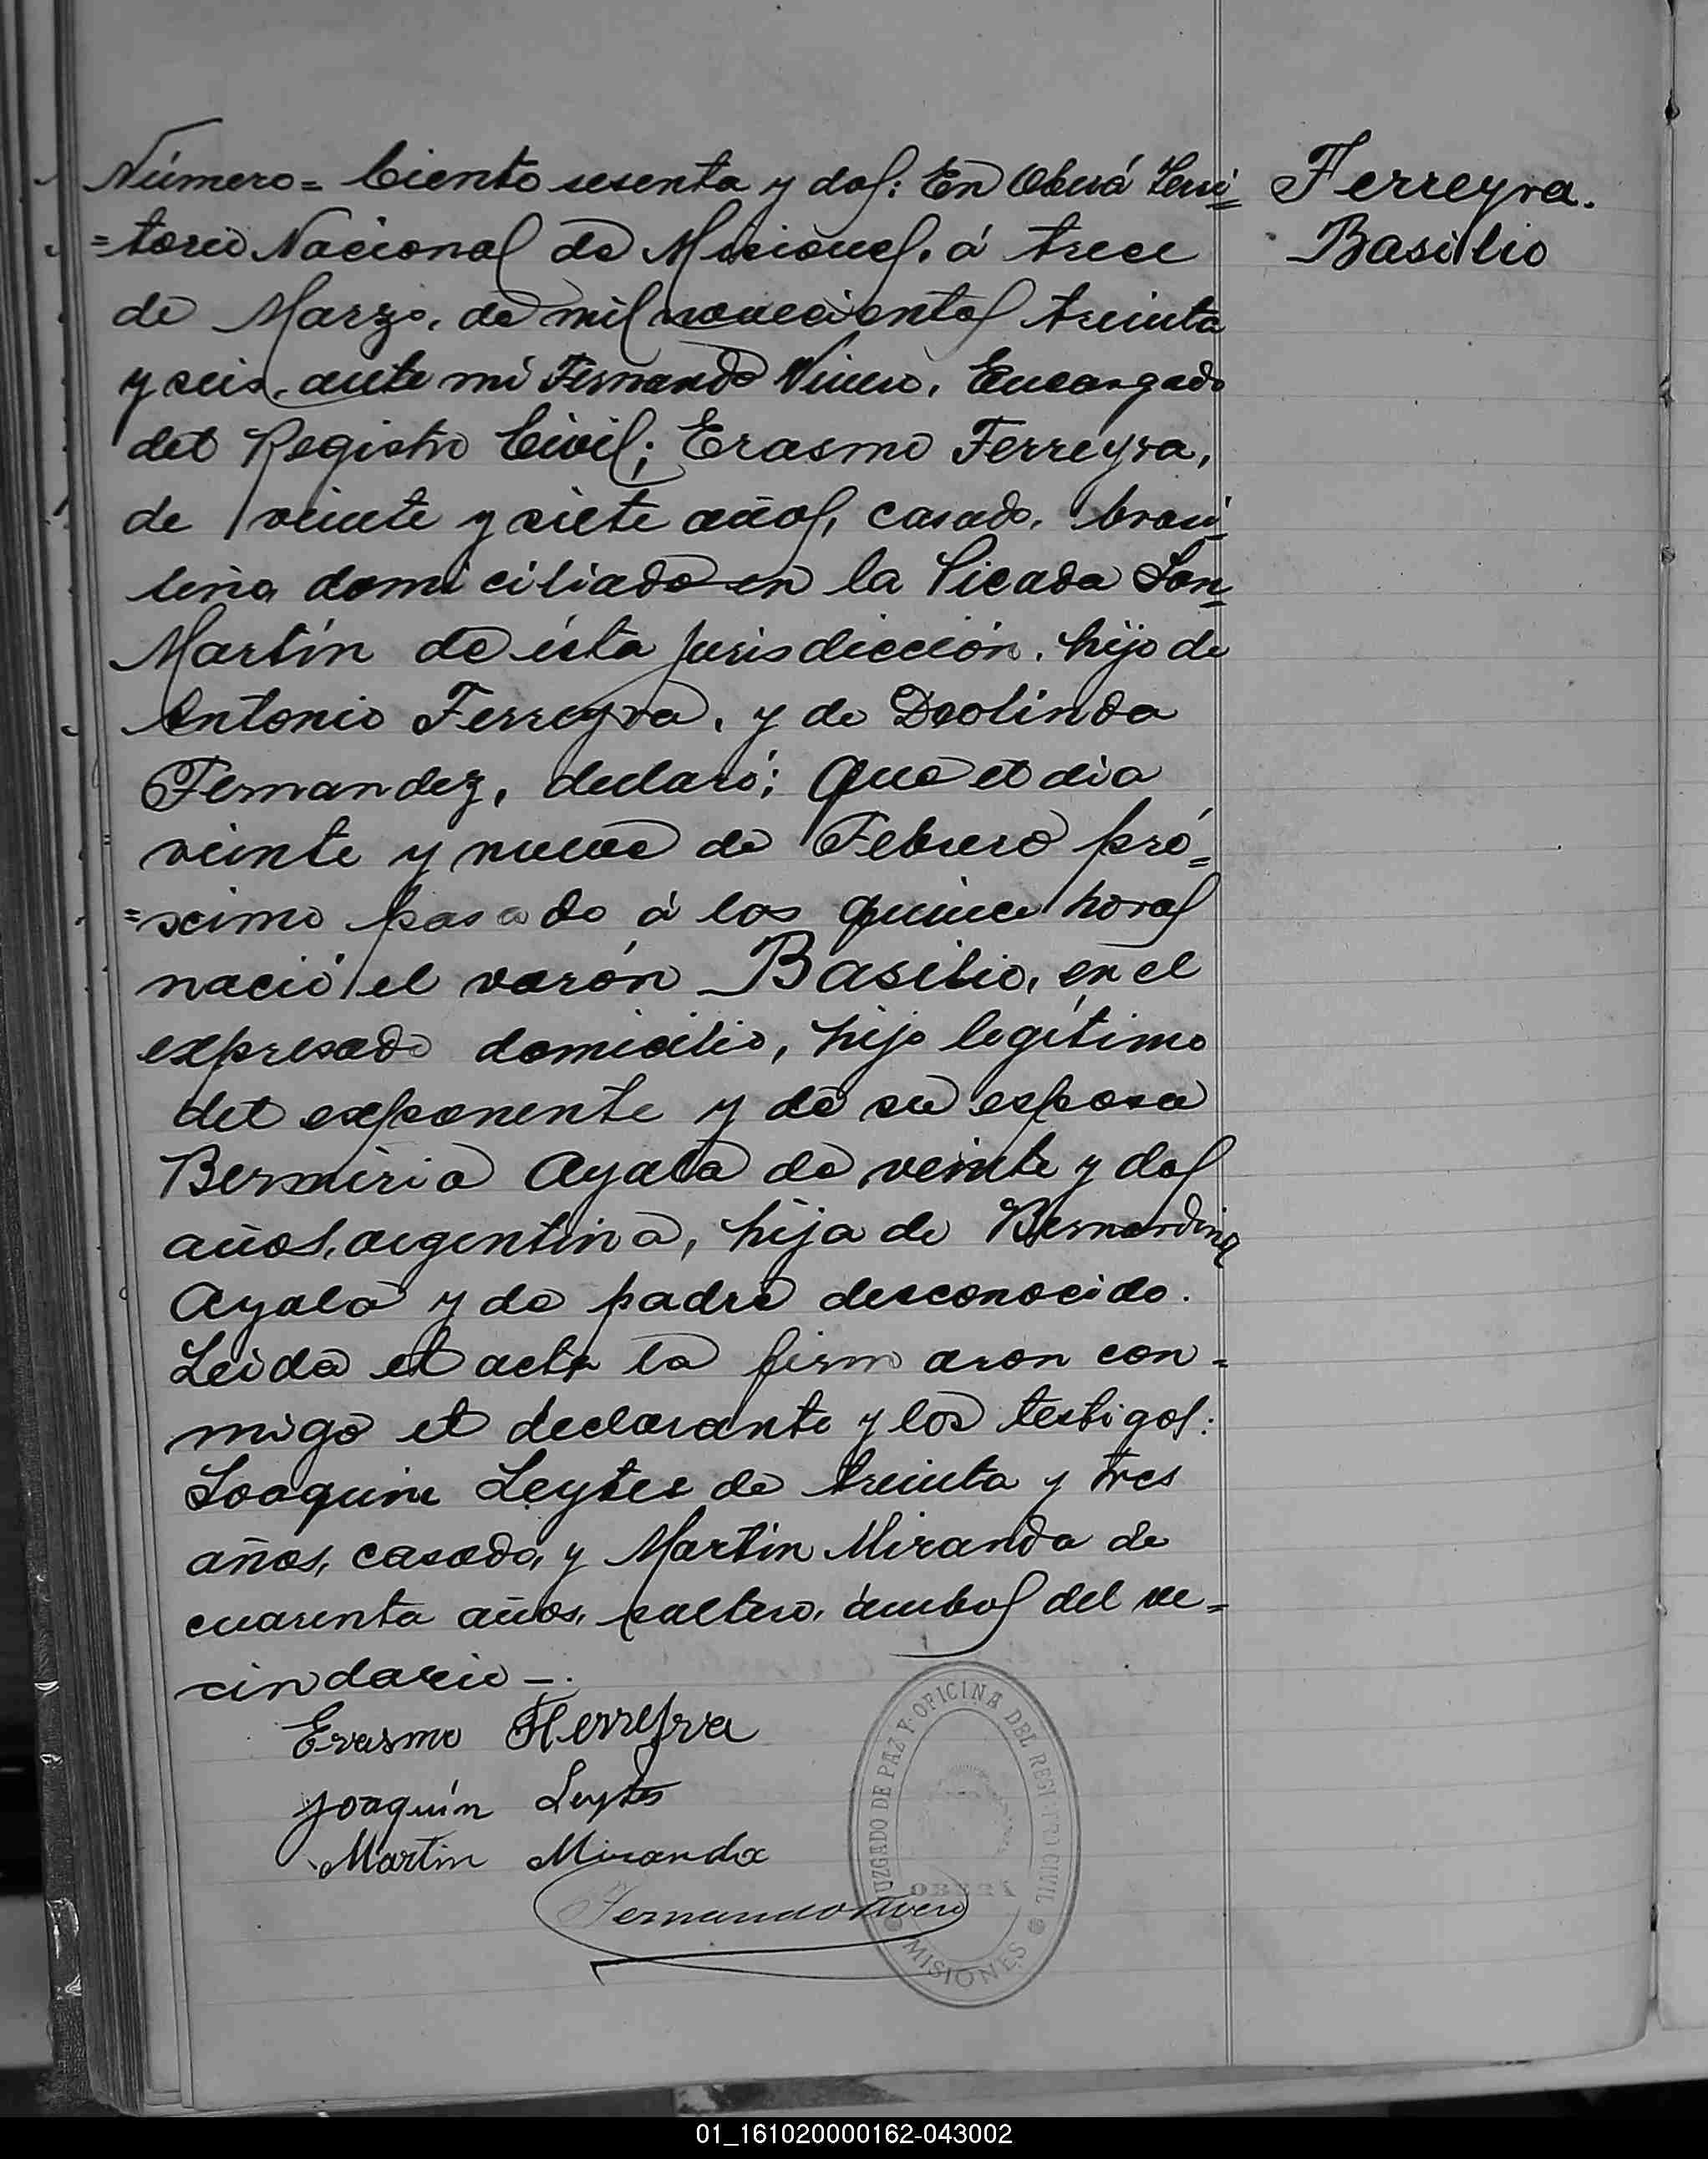 Número = Ciento sesenta y dos: En Oberá Terri=
=torio Nacional de Misiones, á trece
de Marzo, de mil novecientos treinta
y seis, ante mi Fernando Vivero, Encargado
del Registro Civil; Erasmo Ferreyra,
de veinte y siete años, casado, brasi=
leño, domiciliado en la Picada San=
Martín de ésta jurisdicción, hijo de
Antonio Ferreyra, y de Deolinda
Fernandez, declaró; Que el dia
veinte y nueve de Febrero pró=
=ximo pasado á las quince horas
nació el varón Basilio, en el
expresado domicilio, hijo legítimo
del exponente y de su esposa
Bermiria Ayala de veinte y dos
años, argentina, hija de Bernardina
Ayala y de padre desconocido.
Leida el acta la firmaron con=
migo el declarante y los testigos:
Joaquin Leytes de treinta y tres
años, casado, y Martin Miranda de
cuarenta años, soltero, ámbos del ve=
cindario -.
Erasmo Ferreyra
Joaquín Leytes
Martin Miranda
Fernando Vivero
Ferreyra.
Basilio
JUZGADO DE PAZ Y OFICINA DEL REGISTRO CIVIL
OBERÁ
MISIONES
01_161020000162-043002